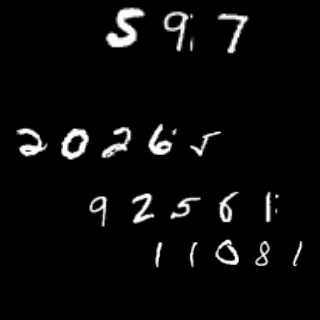 597
20265
92561
11081